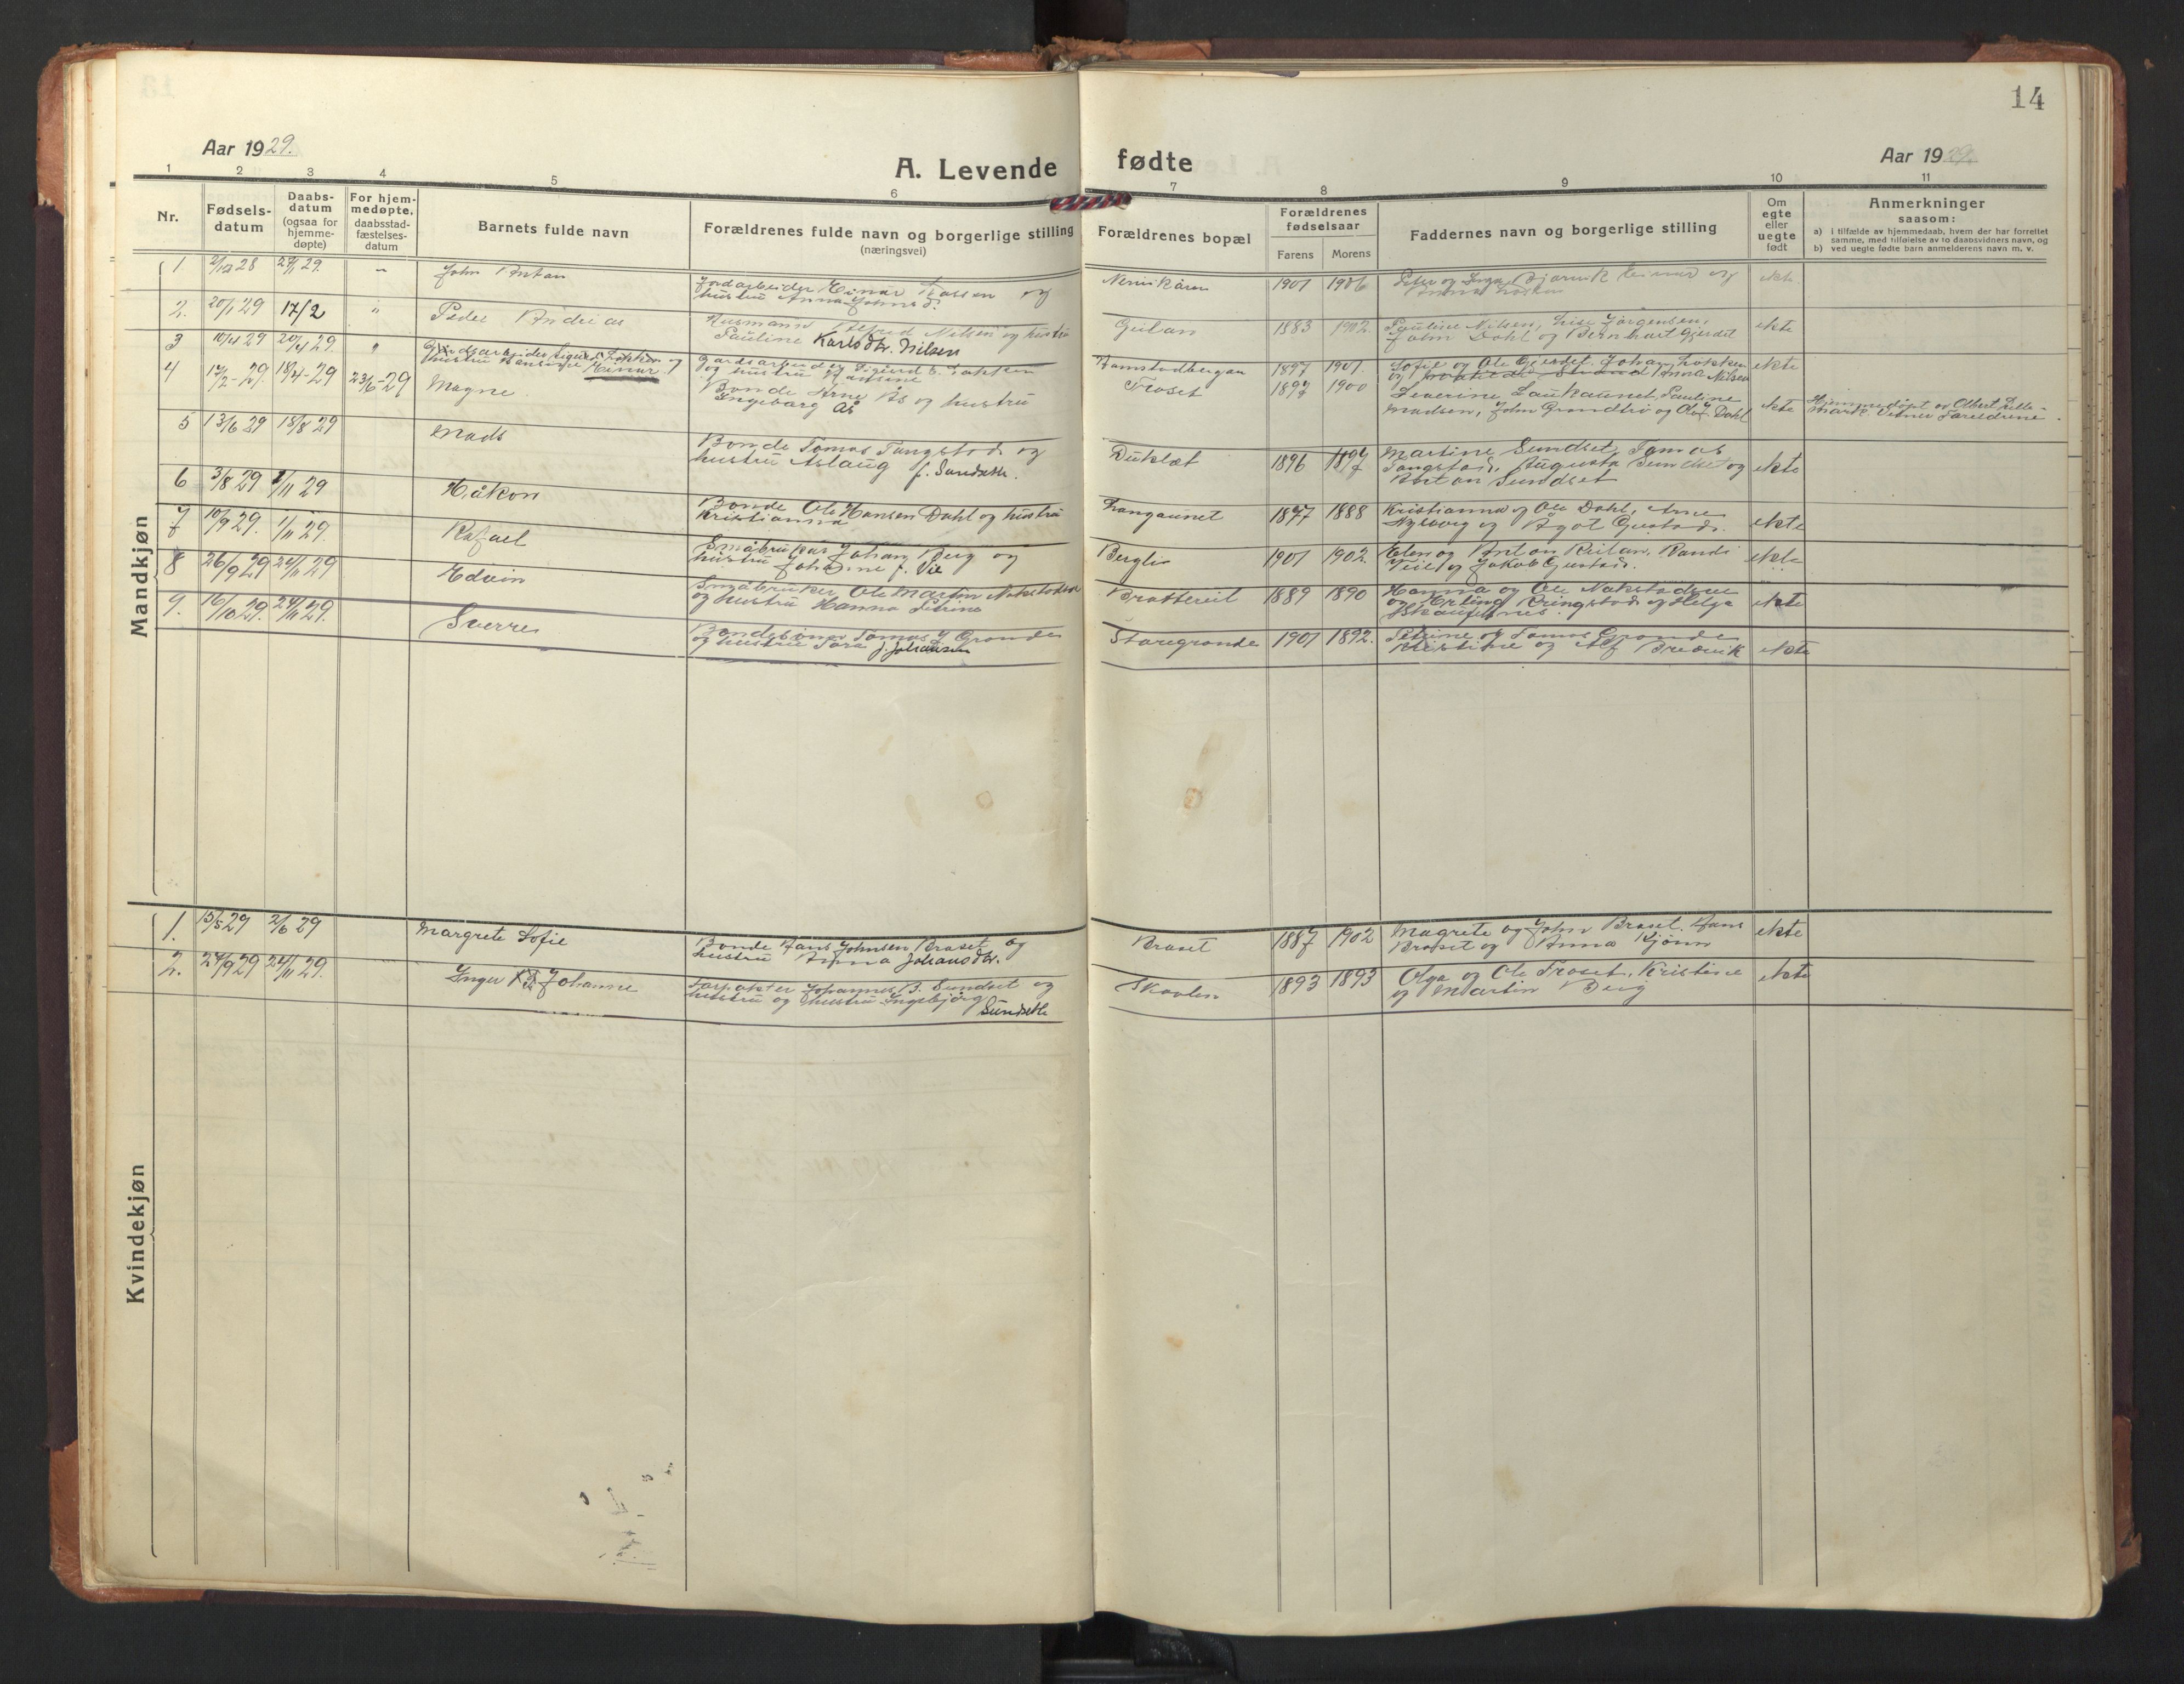 14
Aar 1929.
A. Levende fødte
Aar 1929.
1 2 3 4 5 6 7 8 9 10 11
Nr.
Fødsels-
datum
Daabs-
datum
(ogsaa for
hjemme-
døpte)
For hjem-
medøpte,
daabsstad-
fæstelses-
datum
Barnets fulde navn
Forældrenes fulde navn og borgerlige stilling
(næringsvei)
Forældrenes bopæl
Forældrenes
fødselsaar
Farens Morens
Faddernes navn og borgerlige stilling
Om
egte
eller
uegte
født
Anmerkninger
saasom:
a) i tilfælde av hjemmedaab, hvem der har forrettet
samme, med tilføielse av to daabsvidners navn, og
b) ved uegte fødte barn anmelderens navn m. v.
Mandkjøn
1 2/12 28 27/1 29. John Anton
Jordarbeider Einar og
hustru Anna Johnsd. 1901 1906 Peter og Inga Bjørnvik Einar og
Anna ekte
2. 20/1 29 17/2 " Peder Andreas
Husmann Alfred Nilsen og hustru
Pauline Karlsdtr. Nilsen
Geilan 1883 1902. Pauline Nilsen, Lise Jørgensen,
John Dahl og Bernhart Gjerdet ekte
3 10/4 29 20/4 29. " Gardsarbeider Sigurd Løkken og
hustru Hansine Einar
Gardsarbeider Sigurd E. Løkken
og hustru Hansine
1897 1901. Sofie og Ole Gjerdet. Johan Løkken
og Anna Nilsen ekte
4 17/2-29. 18/4-29 23/6-29 Magne.
Bonde Arne Ås og hustru
Ingeborg Ås
Troset 1897 1900 Severine Laukaunet, Pauline
Madsen, John Grandbo og Olaf Dahl ekte
Hjemmedøpt av Olbert Lille-
mark. Vitner Foreldrene.
5 13/6 29 18/8 29 Mads
Bonde Tomas Tangstad og
hustru Aslaug f. Sundseth.
Duklæt 1896 1897 Martine Sundset, Tomas
Tangstad, Augusta Sundset og
Anton Sundset ekte
6 3/8 29 1/11 29 Håkon
Bonde Ole Hansen Dahl og hustru
Kristianna
Langaunet 1877 1888 Kristianna og Ole Dahl, Arne
Nyborg og Ågot Gustad. ekte
7 10/9 29. 1/11 29. Rafael
Småbruker Johan Berg og
hustru Johanne f. Vie
Berglia 1901 1902. Elen og Anton Reitan, Randi
Veie og Jakob Gustad. ekte
8 26/9 29 24/11 29 Edvin
Småbruker Ole Martin Nakstadmo
og hustru Hanna Petrine
Brattereit 1889 1890 Hanna og Ole Nakstadmo
og Erling Ringstad og Helga
Skaugsnes. ekte
9. 16/10 29. 24/11 29. Sverre
Bondesønn Tomas J Grande
og hustru Tora f. Johansen
Staregrande 1901 1892. Petrine og Tomas Grande
Kristine og Alf Bredvik ekte
Kvindekjøn
1. 15/5 29 2/6 29 Margrete Sofie
Bonde Hans Johnsen Braset og
hustru Anna Johansdtr.
Braset 1887 1902 Magrete og John Braset. Hans
Braset og Anna Kjønn ekte
2. 24/9 29 24/11 29. Inger Johanne
Forpakter Johannes B. Sundset og
hustru og hustru Ingebjørg
Sundseth
Skavlen 1893 1893 Olga og Ole Troset, Kristine
og Martin Berg ekte